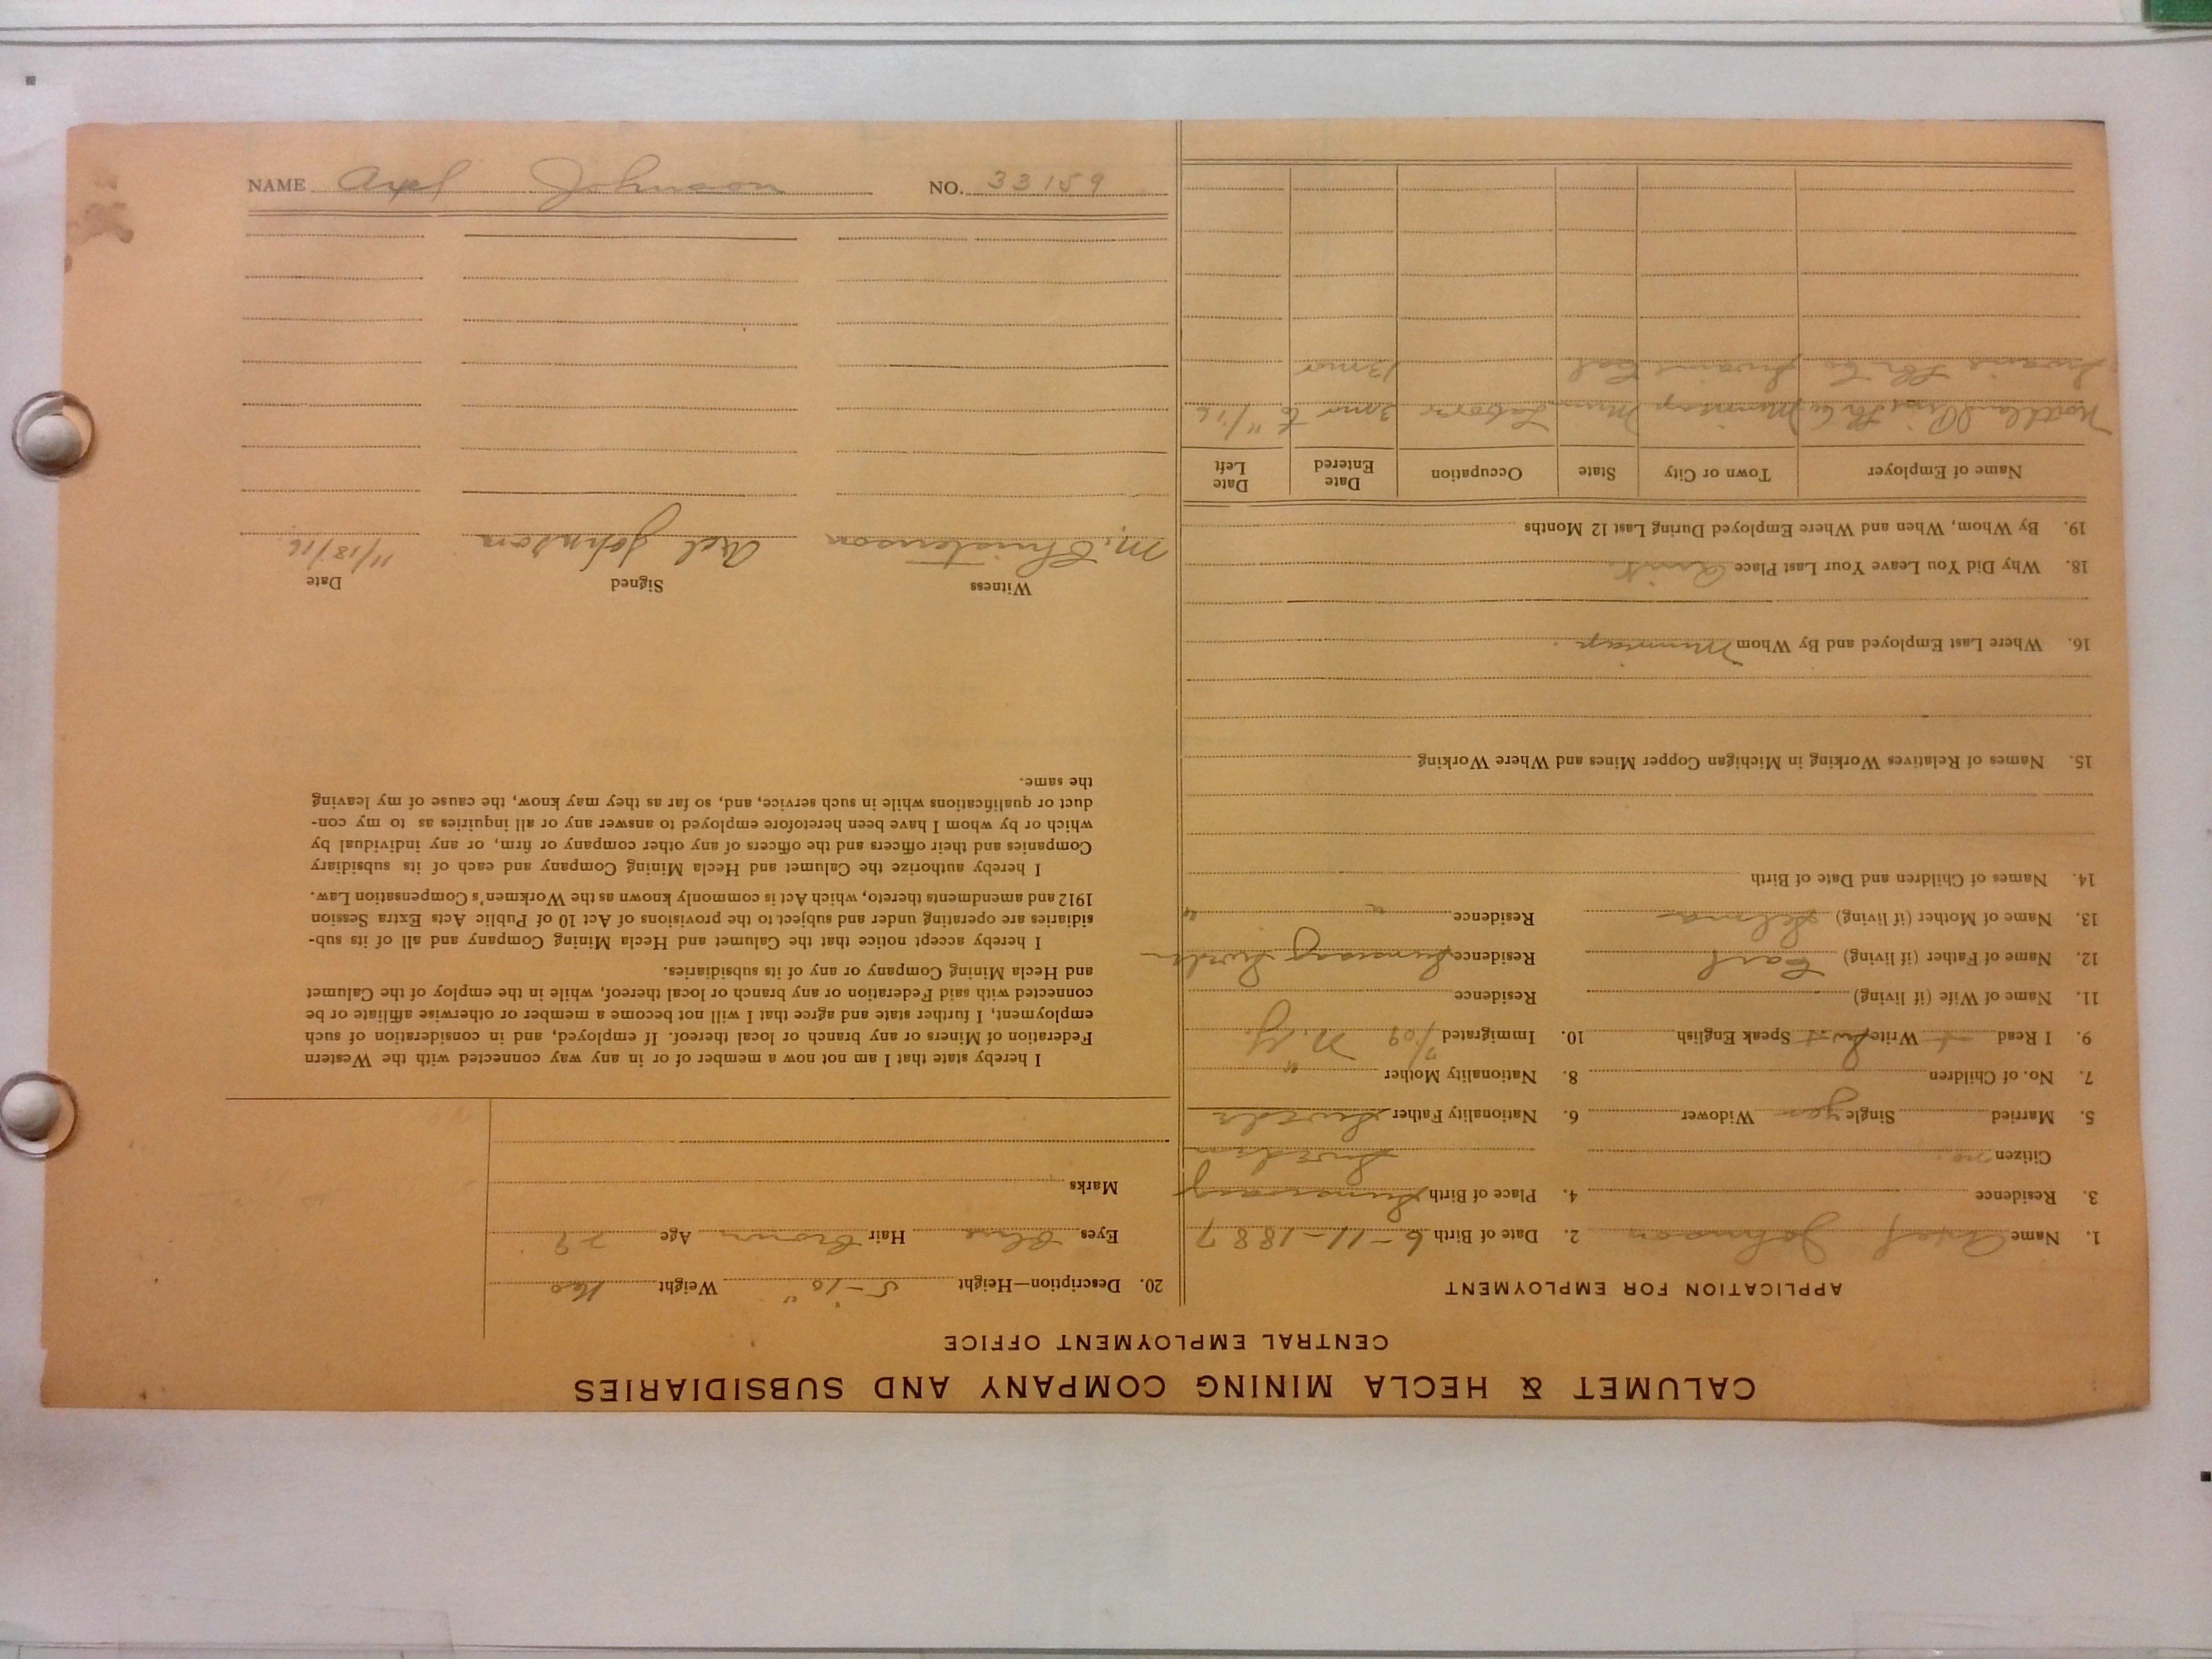 NAME Axel Johnson NO. 33159
CALUMET & HECLA MINING COMPANY AND SUBSIDIARIES
CENTRAL EMPLOYMENT OFFICE
APPLICATION FOR EMPLOYMENT
1. Name Axel Johnson 2. Date of Birth 6-11-1887
3. Residence 4. Place of Birth
Citizen no Sweden
5. Married Single yes Widower 6. Nationality Father Swede
7. No. of Children 8. Nationality Mother "
9. I Read Write Speak English 10. Immigrated 7/09 N.Y.
11. Name of Wife (if living) Residence
12. Name of Father (if living) Carl Residence Sweden
13. Name of Mother (if living) Selma Residence " "
14. Names of Children and Date of Birth
15. Names of Relatives Working in Michigan Copper Mines and Where Working
16. Where Last Employed and By Whom
18. Why Did You Leave Your Last Place Quit
19. By Whom, When and Where Employed During Last 12 Months
Name of Employer Town or City State Occupation Date Entered Date Left
Laborer 3 mo to 11/16
Co Cal 13 mo
20. Description—Height 5'-10" Weight 160
Eyes Blue Hair Brown Age 29
Marks
I hereby state that I am not now a member of or in any way connected with the Western
Federation of Miners or any branch or local thereof. If employed, and in consideration of such
employment, I further state and agree that I will not become a member or otherwise affiliate or be
connected with said Federation or any branch or local thereof, while in the employ of the Calumet
and Hecla Mining Company or any of its subsidiaries.
I hereby accept notice that the Calumet and Hecla Mining Company and all of its sub-
sidiaries are operating under and subject to the provisions of Act 10 of Public Acts Extra Session
1912 and amendments thereto, which Act is commonly known as the Workmen's Compensation Law.
I hereby authorize the Calumet and Hecla Mining Company and each of its subsidiary
Companies and their officers and the officers of any other company or firm, or any individual by
which or by whom I have been heretofore employed to answer any or all inquiries as to my con-
duct or qualifications while in such service, and, so far as they may know, the cause of my leaving
the same.
Witness Signed Date
M. Christenson Axel Johnson 11/18/16